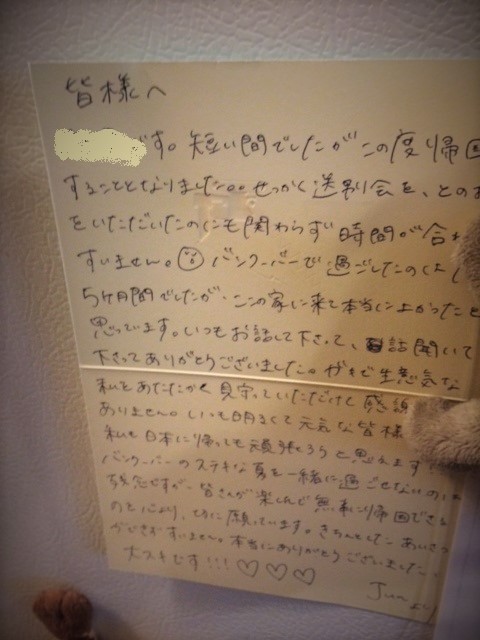 皆様へ
です。短い間でしたがこの度帰国
することとなりました。せっかく送別会を、とのお
をいただいたのにも関わらず時間が合わ
すいません。バンクーバーで過ごしたのは
5ヶ月間でしたが、ここの家に来て本当によかったと
思っています。いつもお話して下さって、話聞いて
下さってありがとうございました。ガキで生意気な
私をあたたかく見守っていただけて感謝
ありません。いつも明るくて元気な皆様
私も日本に帰っても頑張ろうと思えます
バンクーバーのステキな夏を一緒に過ごせないのは
残念ですが、皆さんが楽しんで無事に帰国できる
のを心より、切に願っています。きちんとしたあいさつ
ができずすいません。本当にありがとうございました。
大スキです!!!♡♡♡
Junより